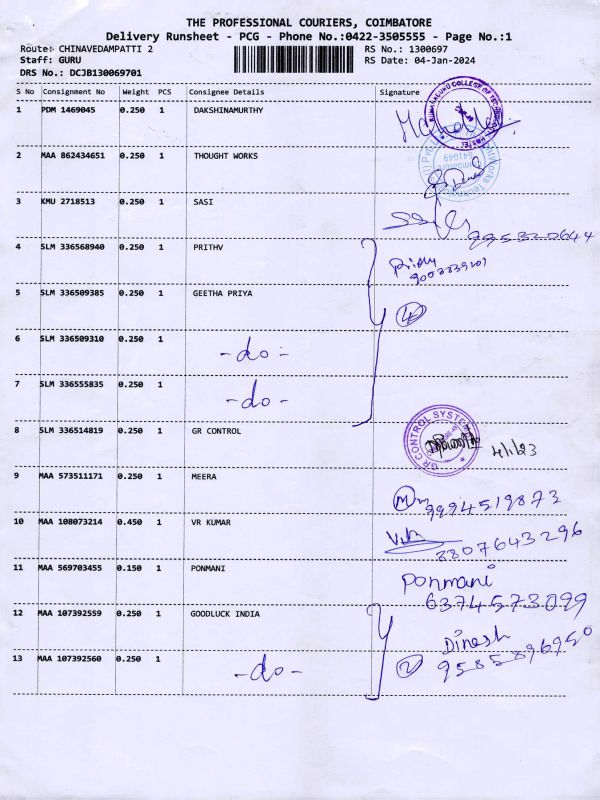 THE PROFESSIONAL COURIERS, COIMBATORE
Delivery Runsheet - PCG - Phone No.:0422-3505555 - Page No.:1
Route: CHINAVEDAMPATTI 2 RS No.: 1300697
Staff: GURU RS Date: 04-Jan-2024
DRS No.: DCJB130069701
S No Consignment No Weight PCS Consignee Details Signature
1 PDM 1469045 0.250 1 DAKSHINAMURTHY
2 MAA 862434651 0.250 1 THOUGHT WORKS
641049
3 KMU 2718513 0.250 1 SASI
4 SLM 336568940 0.250 1 PRITHV
5 SLM 336509385 0.250 1 GEETHA PRIYA 4
6 SLM 336509310 0.250 1 -do-
7 SLM 336555835 0.250 1 -do-
8 SLM 336514819 0.250 1 GR CONTROL GR CONTROL SYSTEMS 4/1/23
9 MAA 573511171 0.250 1 MEERA 9994519873
10 MAA 108073214 0.450 1 VR KUMAR 8807643296
11 MAA 569703455 0.150 1 PONMANI Ponmani
6374573099
12 MAA 107392559 0.250 1 GOODLUCK INDIA Dinesh
13 MAA 107392560 0.250 1 -do- 2 9585896950